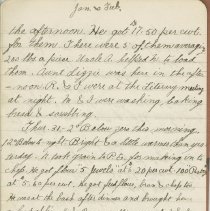 Jan. & Feb.
the afternoon. He got 17.50 per cwt.
for them. There were 5 of them averaging
20 lbs a piece. Uncle A. helped h. to load
them. Aunt Lizzie was here in the afte-
noon. R. & I were at the Literary meeting
at night. M. & I were washing, baking
bread & scrubbing.
Thu. 31 - 2° Below zero this morning.
12° Below to-night. Bright & a little warmer than yes-
terday. A took grain to R.E. for making in to
chop. He got flour 5 at 20 per cent. 100
at 5.60 per c. He got flour, bran & chop
He went the back after dinner and brought